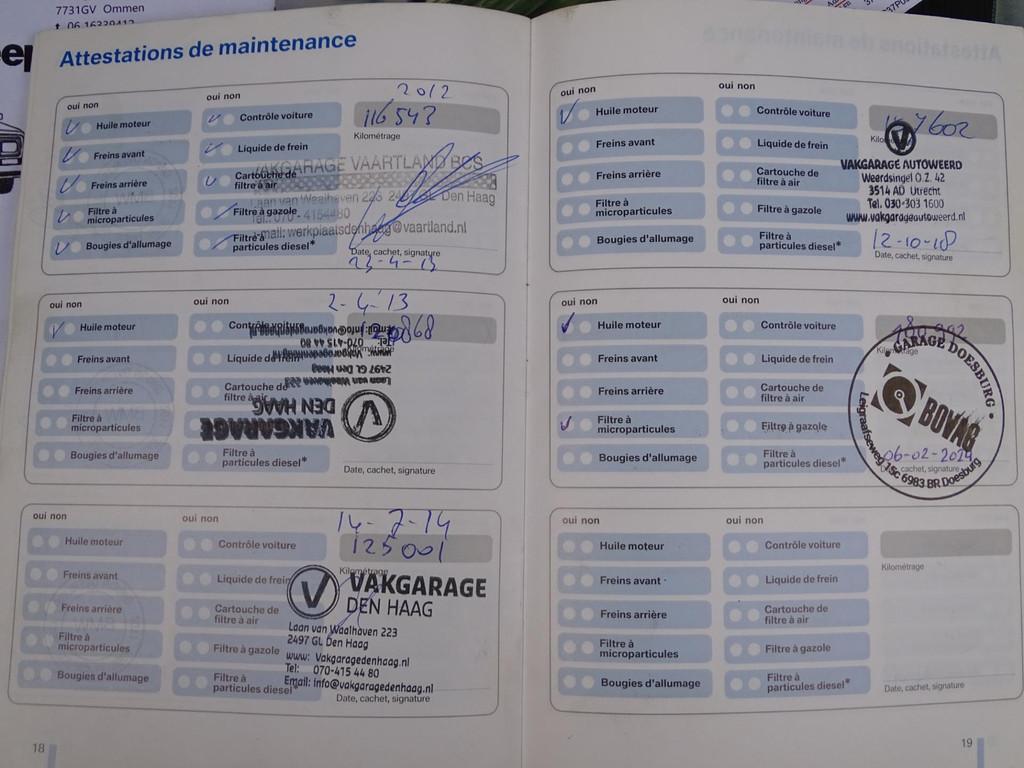 7731GV Ommen
Attestations de maintenance
2012
oui non
oui non
116543
Huile moteur
Contrôle voiture
Kilométrage
Freins avant
Liquide de frein
VAKGARAGE VAARTLAND BOS
Freins arrière
Cartouche de
filtre à air
Laan van Waalhaven 223 2497 Den Haag
Filtre à
microparticules
Filtre à gazole
Tel.: 070 - 4154480
e-mail: werkplaatsdenhaag@vaartland.nl
Bougies d'allumage
Filtre à
particules diesel*
Date, cachet, signature
23-4-13
2-4-'13
oui non
oui non
Huile moteur
Contrôle voiture
Kilométrage
Freins avant
Liquide de frein
Freins arrière
Cartouche de
filtre à air
Filtre à
microparticules
Bougies d'allumage
Filtre à
particules diesel*
Date, cachet, signature
VAKGARAGE
DEN HAAG
Laan van Waalhaven 223
2497 GL Den Haag
www: Vakgaragedenhaag.nl
Tel: 070-415 44 80
Email: Info@vakgaragedenhaag.nl
14-7-14
oui non
oui non
125001
Huile moteur
Contrôle voiture
Kilométrage
Freins avant
Liquide de frein
Freins arrière
Cartouche de
filtre à air
Filtre à
microparticules
Filtre à gazole
Bougies d'allumage
Filtre à
particules diesel*
VAKGARAGE
DEN HAAG
Laan van Waalhaven 223
2497 GL Den Haag
www: Vakgaragedenhaag.nl
Tel: 070-415 44 80
Email: Info@vakgaragedenhaag.nl
Date, cachet, signature
18
oui non
oui non
Huile moteur
Contrôle voiture
7602
Freins avant
Liquide de frein
Freins arrière
Cartouche de
filtre à air
Filtre à
microparticules
Filtre à gazole
Bougies d'allumage
Filtre à
particules diesel*
VAKGARAGE AUTOWEERD
Weerdsingel O.Z. 42
3514 AD Utrecht
Tel. 030-303 1600
www.vakgarageautoweerd.nl
12-10-18
Date, cachet, signature
oui non
oui non
Huile moteur
Contrôle voiture
Freins avant
Liquide de frein
Freins arrière
Cartouche de
filtre à air
Filtre à
microparticules
Filtre à gazole
Bougies d'allumage
Filtre à
particules diesel*
GARAGE DOESBURG
BOVAG
Leigraafseweg 15c 6983 BR Doesburg
06-02-2024
cachet, signature
oui non
oui non
Huile moteur
Contrôle voiture
Kilométrage
Freins avant
Liquide de frein
Freins arrière
Cartouche de
filtre à air
Filtre à
microparticules
Filtre à gazole
Bougies d'allumage
Filtre à
particules diesel*
Date, cachet, signature
19